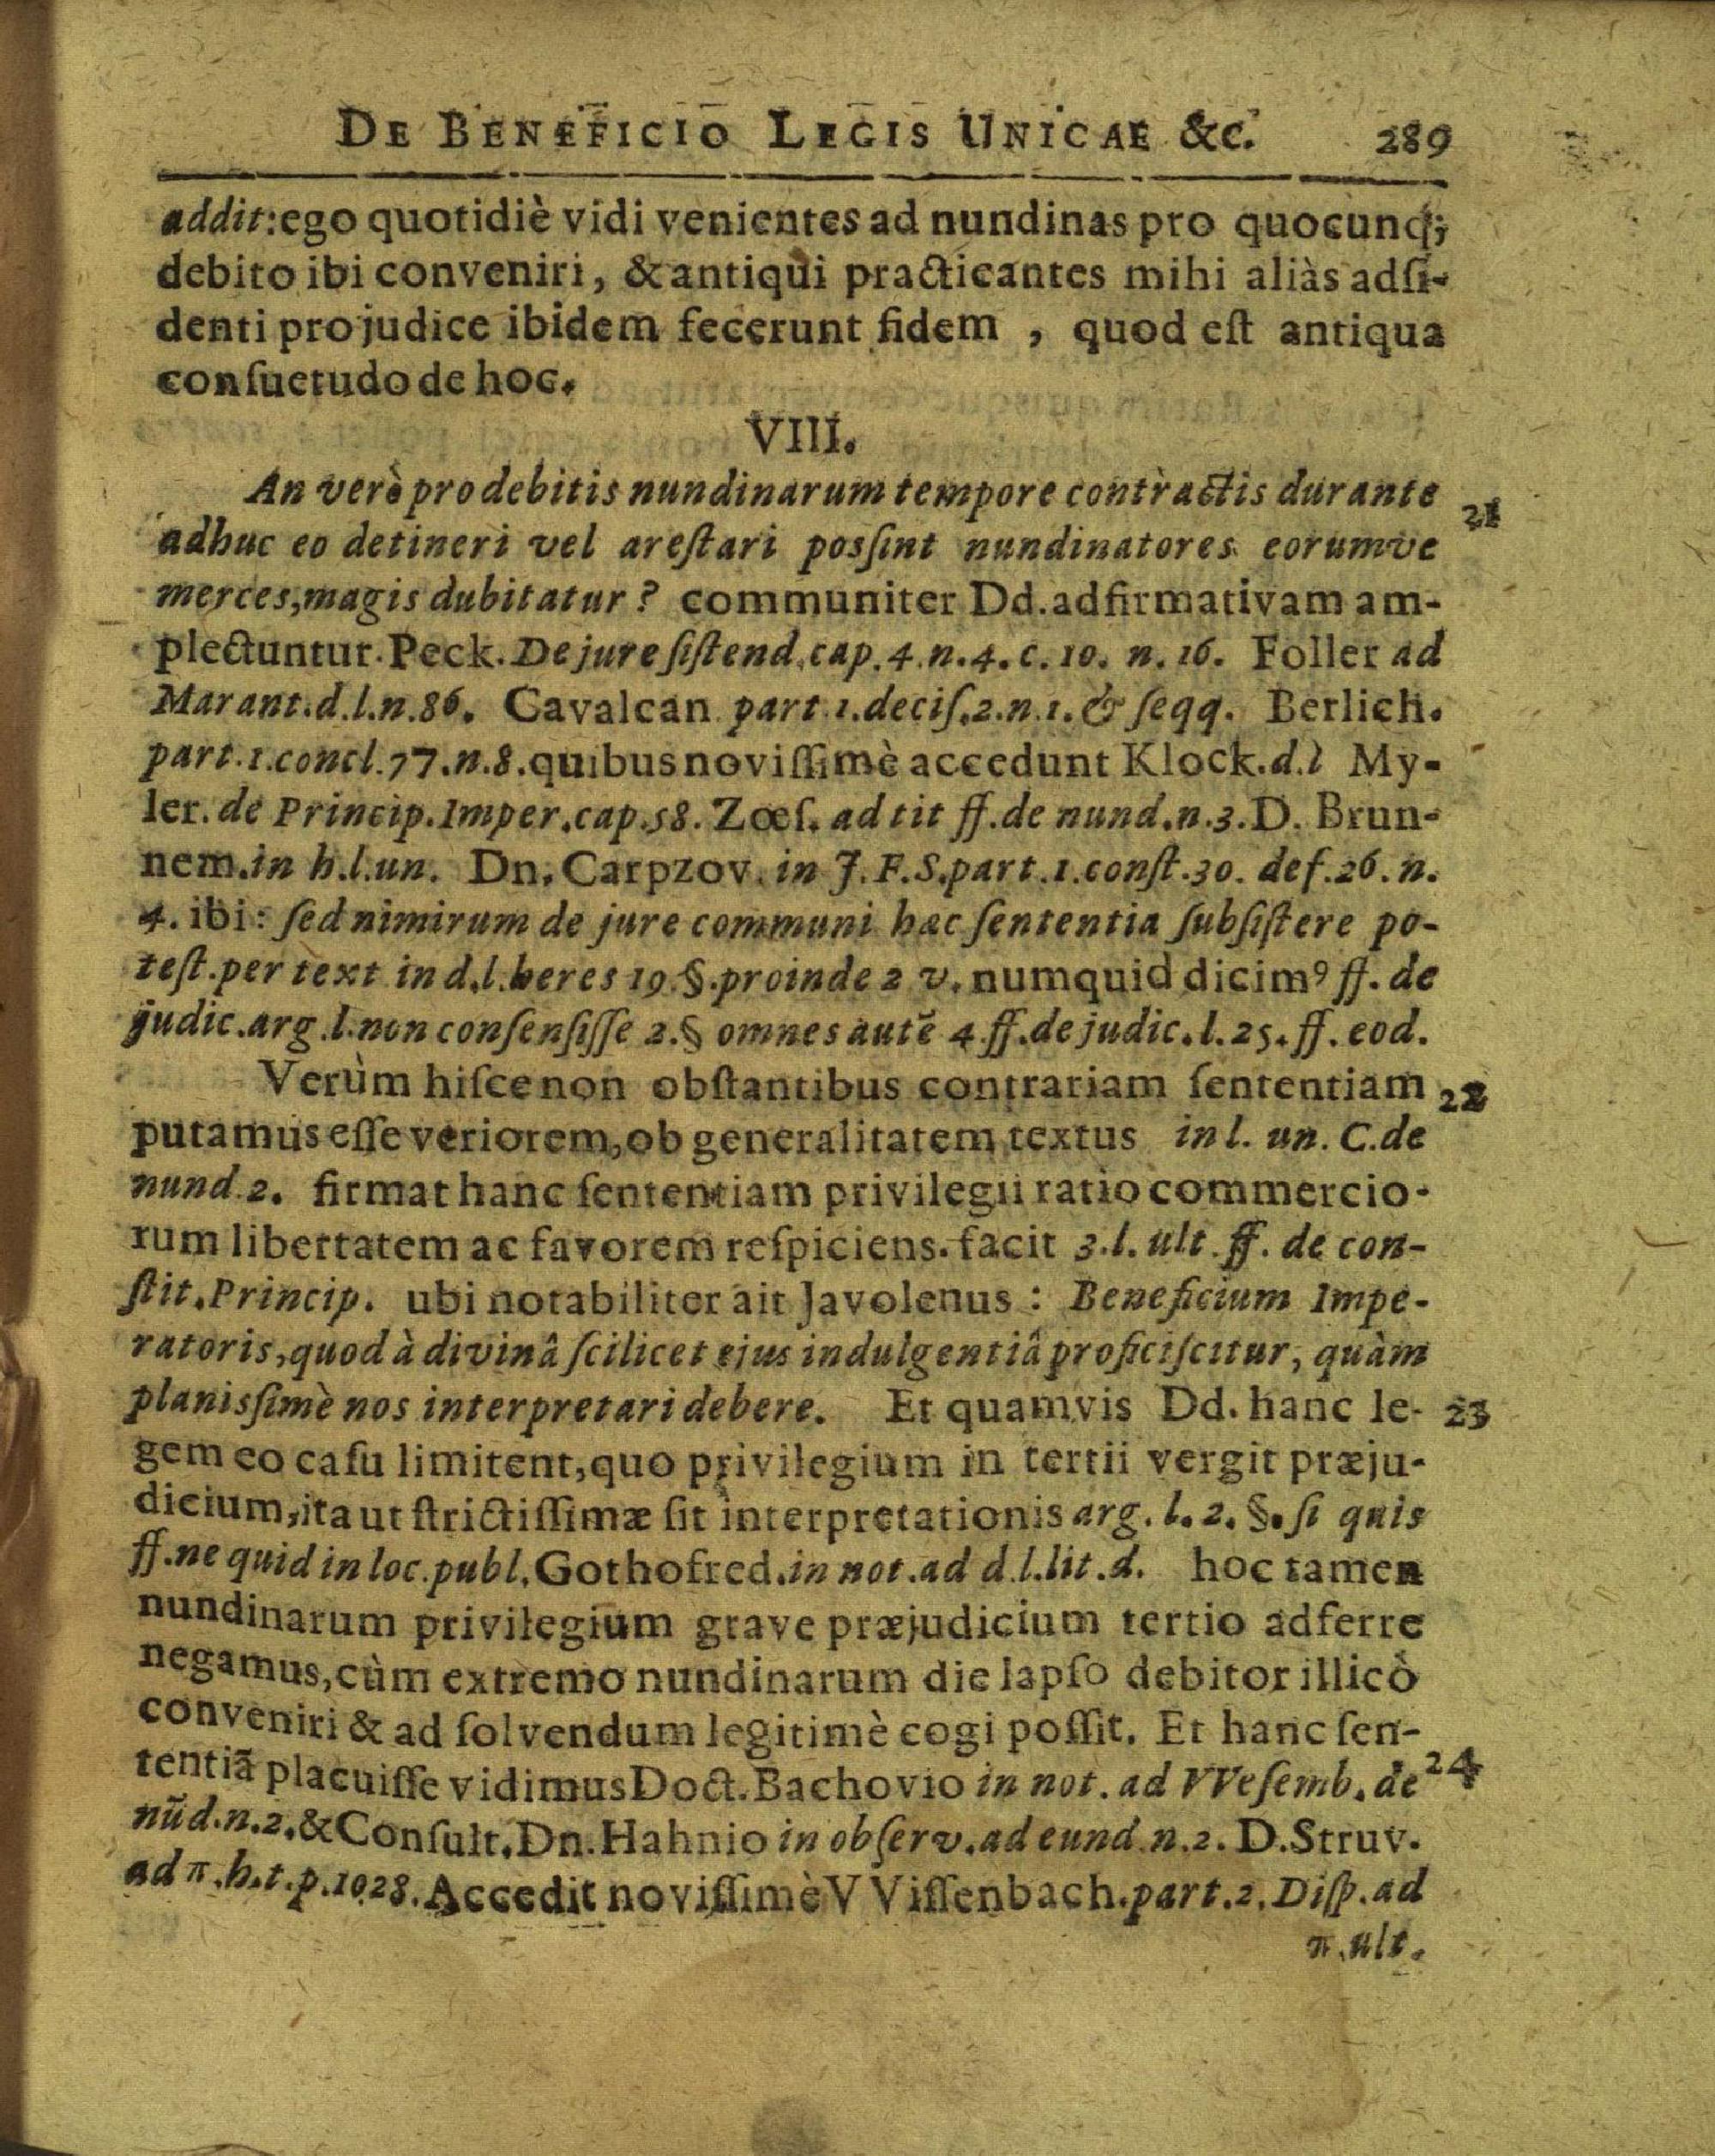 DE BENEFICIO LEGIS UNICAE &c. 289
addit: ego quotidiè vidi venientes ad nundinas pro quocunq;
debito ibi conveniri, & antiqui practicantes mihi aliàs adſi-
denti pro judice ibidem fecerunt fidem , quod eſt antiqua
conſuetudo de hoc.
VIII.
An verò pro debitis nundinarum tempore contractis durante 21
adhuc eo detineri vel areſtari poſsint nundinatores eorumve
merces, magis dubitatur? communiter Dd. adfirmativam am-
plectuntur. Peck. De jure ſiſtend. cap. 4. n. 4. c. 10. n. 16. Foller ad
Marant. d. l. n. 86. Cavalcan part 1. deciſ. 2. n. 1. & ſeqq. Berlich.
part. 1. concl. 77. n. 8. quibus noviſſimè accedunt Klock. d. l My-
ler. de Princip. Imper. cap. 58. Zœſ. ad tit ff. de nund. n. 3. D. Brun-
nem. in h. l. un. Dn. Carpzov. in J. F. S. part. 1. conſt. 30. def. 26. n.
4. ibi: ſed nimirum de jure communi hæc ſententia ſubſiſtere po-
teſt. per text in d. l. heres 19. §. proinde 2 v. numquid dicimꝰ ff. de
judic. arg. l. non conſenſiſſe 2. § omnes autē 4 ff. de judic. l. 25. ff. eod.
Verùm hiſce non obſtantibus contrariam ſententiam 22
putamus eſſe veriorem, ob generalitatem textus in l. un. C. de
nund. 2. firmat hanc ſententiam privilegii ratio commercio-
rum libertatem ac favorem reſpiciens. facit 3. l. ult. ff. de con-
ſtit. Princip. ubi notabiliter ait Javolenus : Beneficium Impe-
ratoris, quod à divinâ ſcilicet ejus indulgentiâ proficiſcitur, quàm
planisſimè nos interpretari debere. Et quamvis Dd. hanc le- 23
gem eo caſu limitent, quo privilegium in tertii vergit præju-
dicium, ita ut ſtrictiſſimæ ſit interpretationis arg. l. 2. §. ſi quis
ff. ne quid in loc. publ. Gothofred. in not. ad d. l. lit. d. hoc tamen
nundinarum privilegium grave præjudicium tertio adferre
negamus, cùm extremo nundinarum die lapſo debitor illicò
conveniri & ad ſolvendum legitimè cogi poſſit. Et hanc ſen-
tentiā placuiſſe vidimus Doct. Bachovio in not. ad VVeſemb. de 24
nūd. n. 2. & Conſult. Dn. Hahnio in obſerv. ad eund. n. 2. D. Struv.
ad π. h. t. p. 1028. Accedit noviſſimè VViſſenbach. part. 2. Diſp. ad
π. ult.